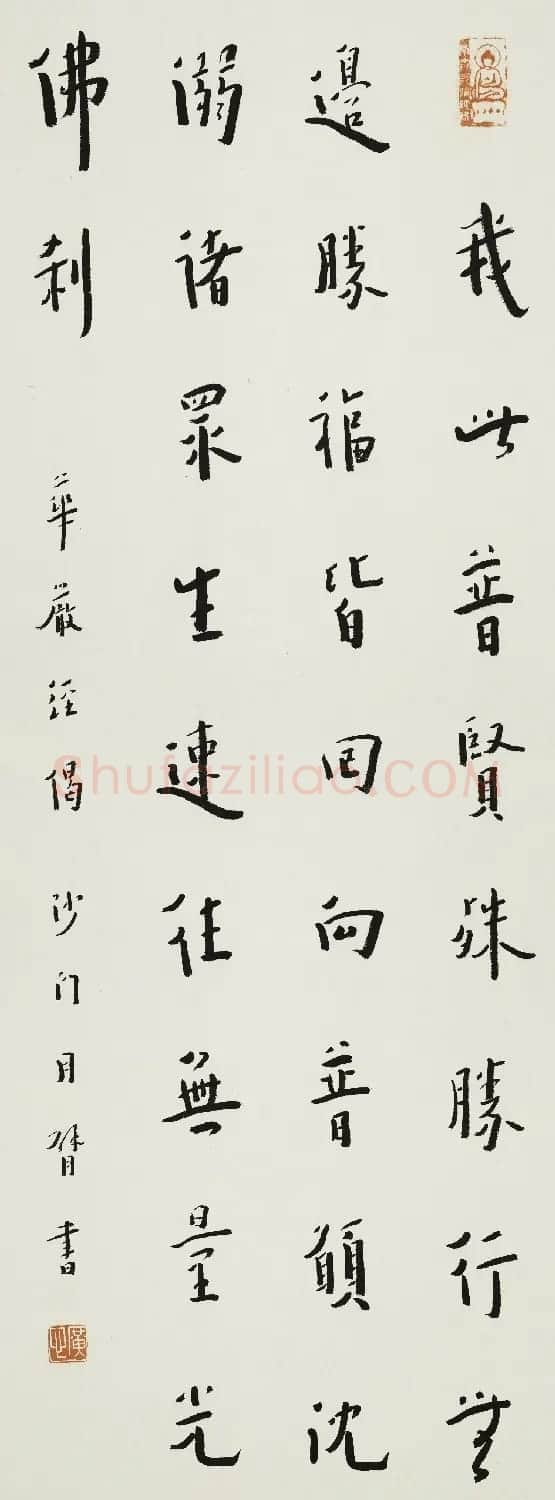 我此普賢殊勝行無
邊勝福皆回向普願沈
溺諸眾生速往無量光
佛刹
華嚴經偈 沙门月臂書
Shufaziliao.COM